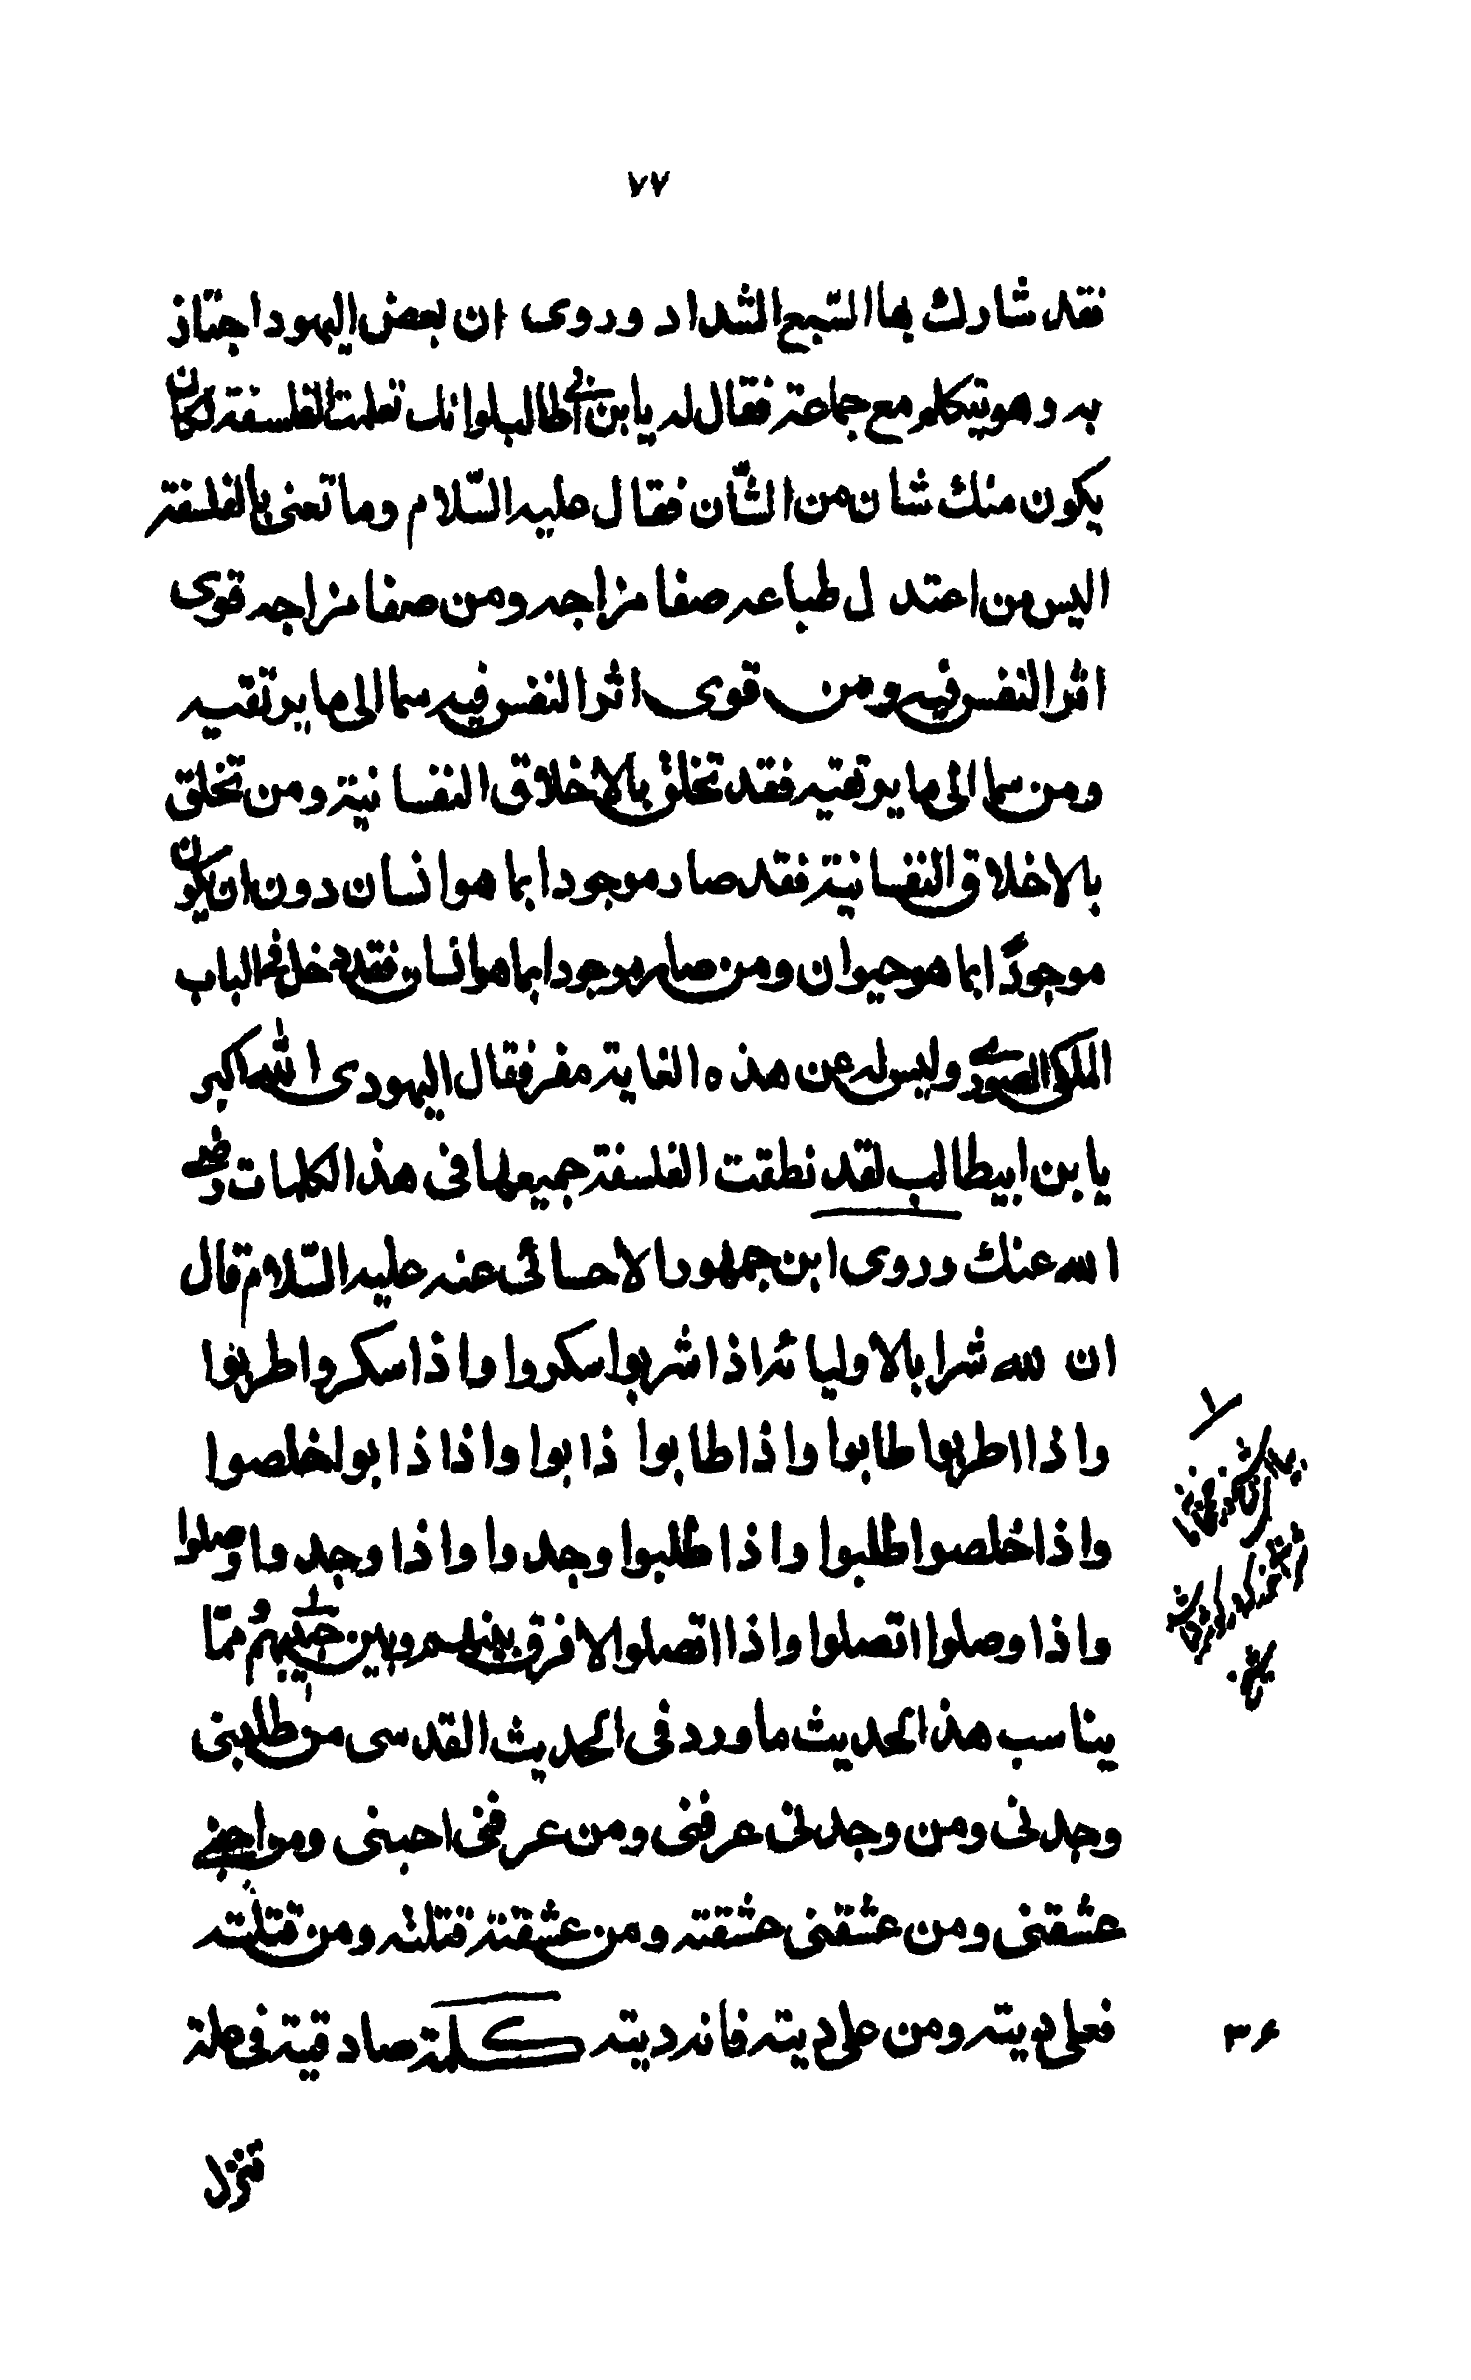 ٧٧
فقد شارك بها السّبع الشداد وروى ان بعض اليهود اجتاز
به وهو يتكلم مع جماعة فقال له يا بن أبي طالب لو انك تعلمت الفلسفة لكان
يكون منك شان من الشّأن فقال عليه السّلام وما تعنى بالفلسفة
اليس من اعتدل طباعه صفا مزاجه ومن صفا مزاجه قوى
اثر النفس فيه ومن قوى اثر النفس فيه سما الى ما يرتقيه
ومن سما الى ما يرتقيه فقد تخلق بالاخلاق النفسانية ومن تخلق
بالاخلاق النفسانية فقد صار موجودا بما هو انسان دون ان يكون
موجودًا بما هو حيوان ومن صار موجودا بما هو انسان فقد دخل فى الباب
الملكى الصورى وليس له عن هذه الغاية مفر فقال اليهودى الله اكبر
يا بن ابيطالب لقد نطقت الفلسفة جميعها فى هذا الكلمات رضى
الله عنك وروى ابن جمهور الاحسائى عنه عليه السّلام قال
ان لله شرابا لاوليائه اذا شربوا سكروا واذا سكروا طربوا
واذا اطربوا طابوا واذا طابوا ذابوا واذا ذابوا خلصوا
واذا خلصوا طلبوا واذا طلبوا وجدوا واذا وجدوا وصلوا
واذا وصلوا اتصلوا واذا اتصلوا لا فرق بينهم وبين حبيبهم وممّا
يناسب هذا الحديث ما ورد فى الحديث القدسى من طلبنى
وجدنى ومن وجدنى عرفنى ومن عرفنى احبنى ومن احبنى
عشقنى ومن عشقنى عشقته ومن عشقته قتلته ومن قتلته
فعلى ديته ومن على ديته فانا ديته كلمة صادقية فى علة
٣۶
تنزل